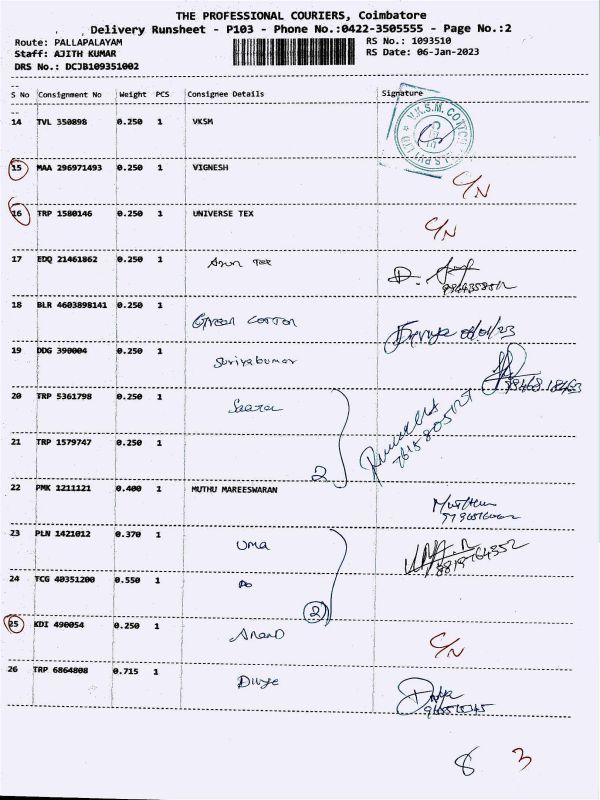 THE PROFESSIONAL COURIERS, Coimbatore
Delivery Runsheet - P103 - Phone No.:0422-3505555 - Page No.:2
Route: PALLAPALAYAM RS No.: 1093510
Staff: AJITH KUMAR RS Date: 06-Jan-2023
DRS No.: DCJB109351002
S No Consignment No Weight PCS Consignee Details Signature
14 TVL 350898 0.250 1 VKSM
15 MAA 296971493 0.250 1 VIGNESH C/N
16 TRP 1580146 0.250 1 UNIVERSE TEX C/N
17 EDQ 21461862 0.250 1 Arun Tex
18 BLR 4603898141 0.250 1 Green Cotton 06/01/23
19 DDG 390004 0.250 1 Suriyakumar
20 TRP 5361798 0.250 1
21 TRP 1579747 0.250 1 2
22 PMK 1211121 0.400 1 MUTHU MAREESWARAN
23 PLN 1421012 0.370 1 Uma
24 TCG 40351200 0.550 1 Do 2
25 KDI 490054 0.250 1 Anand C/N
26 TRP 6864808 0.715 1 Divya Divya
8 3